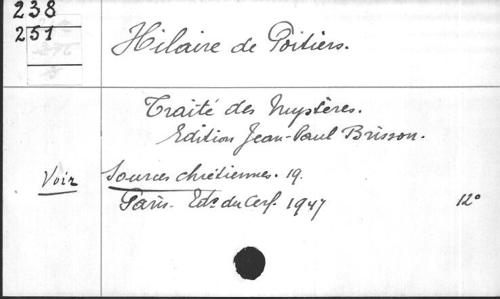 238
251
Hilaire de Poitiers.
Traité des Mystères.
Edition Jean-Paul Brisson.
Voir Sources chrétiennes. 19.
Paris. Eds du Cerf. 1947 12°